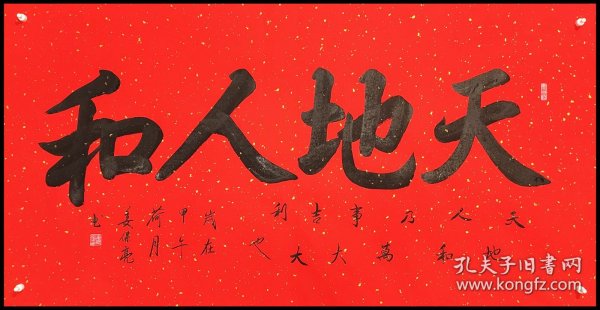 天地人和
天地人和乃萬事大吉大利也
歲在
甲午
荷月
姜保亮
书
孔夫子旧书网
www.kongfz.com